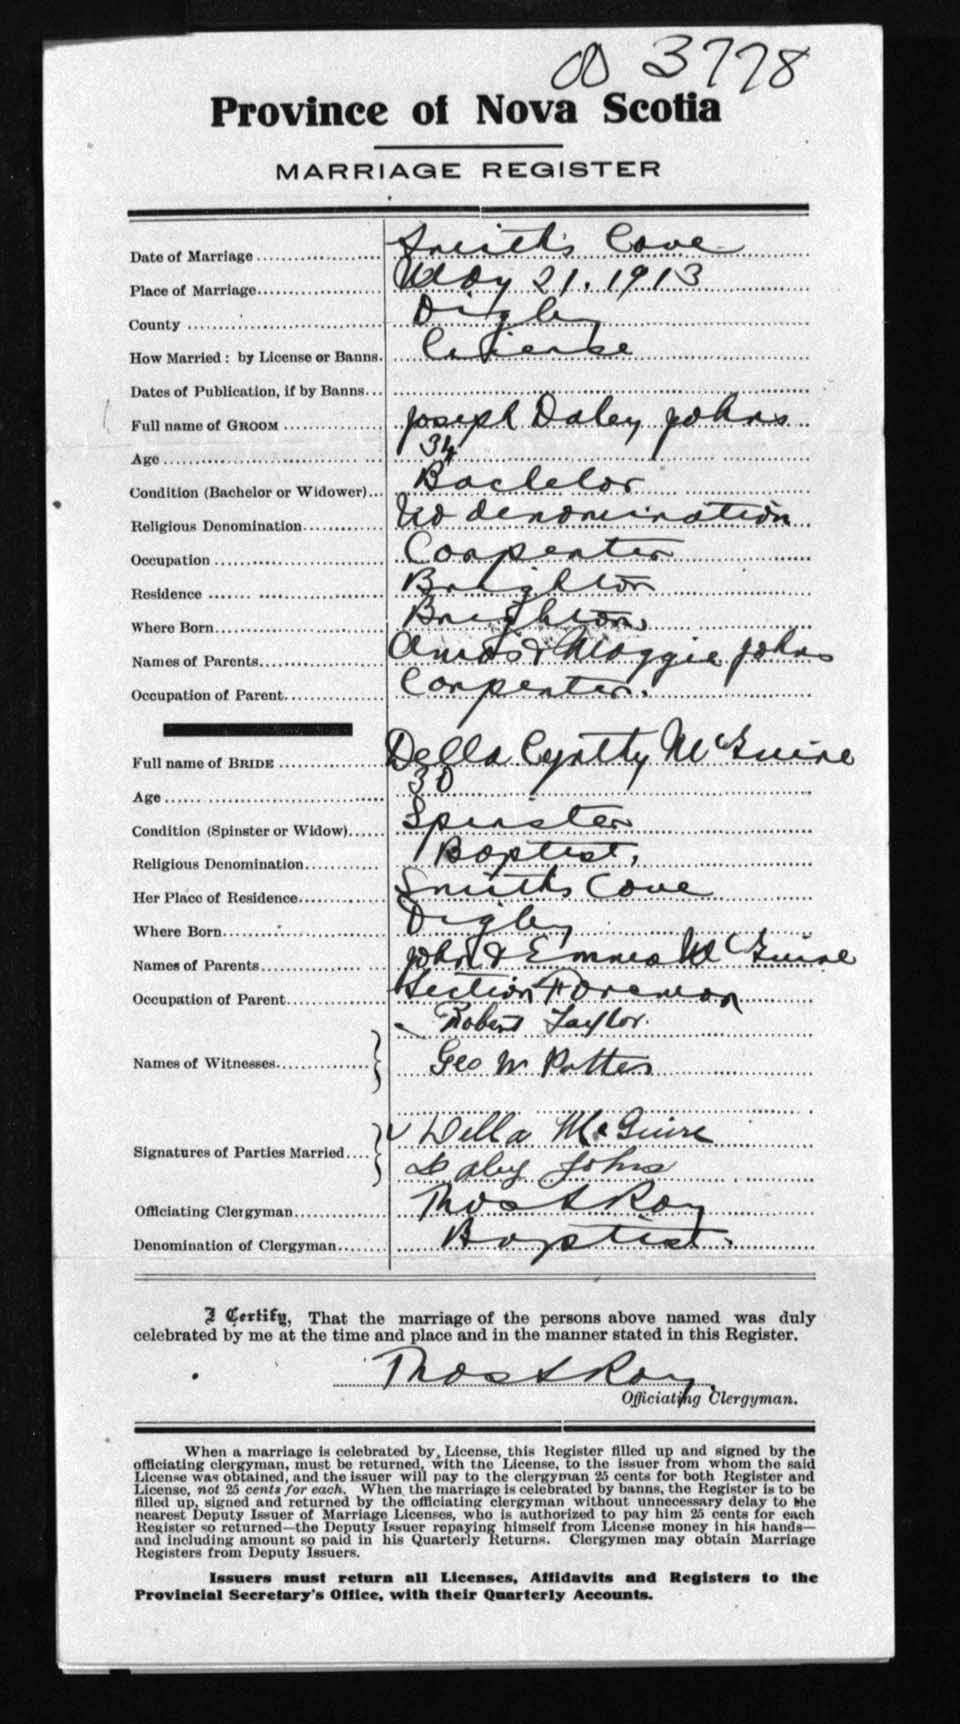 3778
Province of Nova Scotia
MARRIAGE REGISTER
Date of Marriage Smith's Cove
Place of Marriage May 21, 1913
County Digby
How Married: by License or Banns. License
Dates of Publication, if by Banns
Full name of GROOM Joseph Daley Johns
Age 34
Condition (Bachelor or Widower) Bachelor
Religious Denomination No denomination
Occupation Carpenter
Residence Brighton
Where Born Brighton
Names of Parents Amos & Maggie Johns
Occupation of Parent Carpenter.
Full name of BRIDE Della McGuire
Age 30
Condition (Spinster or Widow) Spinster
Religious Denomination Baptist,
Her Place of Residence Smiths Cove
Where Born Digby
Names of Parents John & Emma McGuire
Occupation of Parent Section Foreman
Robert Taylor.
Names of Witnesses Geo W Potter
Della McGuire
Signatures of Parties Married Daley Johns
Officiating Clergyman Thos A Roy
Denomination of Clergyman Baptist.
I Certify, That the marriage of the persons above named was duly
celebrated by me at the time and place and in the manner stated in this Register.
Thos A Roy
Officiating Clergyman.
When a marriage is celebrated by License, this Register filled up and signed by the
officiating clergyman, must be returned, with the License, to the issuer from whom the said
License was obtained, and the issuer will pay to the clergyman 25 cents for both Register and
License, not 25 cents for each. When the marriage is celebrated by banns, the Register is to be
filled up, signed and returned by the officiating clergyman without unnecessary delay to the
nearest Deputy Issuer of Marriage Licenses, who is authorized to pay him 25 cents for each
Register so returned—the Deputy Issuer repaying himself from License money in his hands—
and including amount so paid in his Quarterly Returns. Clergymen may obtain Marriage
Registers from Deputy Issuers.
Issuers must return all Licenses, Affidavits and Registers to the
Provincial Secretary's Office, with their Quarterly Accounts.